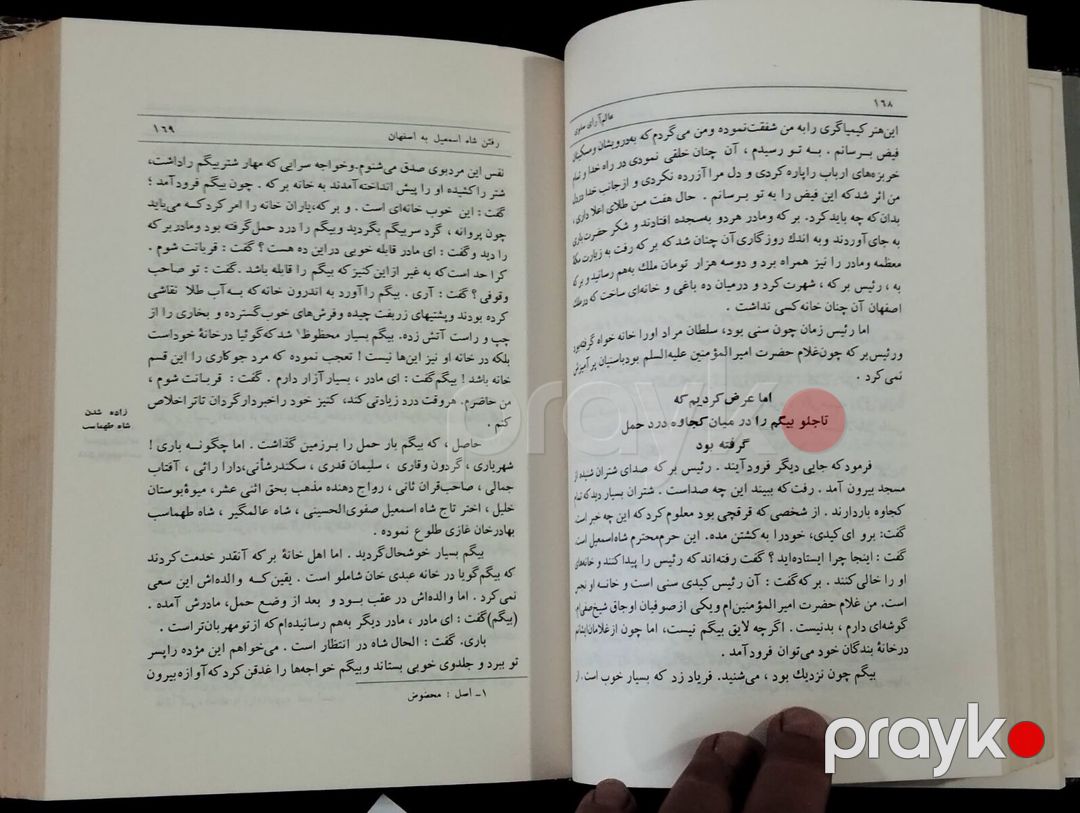 ۱۶۸
عالم‌آرای صفوی
این هنر کیمیاگری را به من شفقت نموده و من می‌گردم که به‌درویشان و مسکینان
فیض برسانم . به تو رسیدم ، آن چنان خلقی نمودی در راه خدا و تمام
خربزه‌های ارباب را پاره کردی و دل مرا آزرده نکردی و ازجانب خدا در دل
من اثر شد که این فیض را به تو برسانم . حال هفت من طلای اعلا داری،
بدان که چه باید کرد. برکه ومادر هردو به‌سجده افتادند و شکر حضرت باری
به جای آوردند و به اندك روزگاری آن چنان شد که برکه رفت به زیارت مکۀ
معظمه ومادر را نیز همراه برد و دوسه هزار تومان ملك به‌هم رسانید و برکه
به ، رئیس برکه ، شهرت کرد و درمیان ده باغی و خانه‌ای ساخت که در ملك
اصفهان آن چنان خانه کسی نداشت .
اما رئیس زمان چون سنی بود، سلطان مراد اورا خانه خواه گرفته‌بود
ورئیس برکه چون‌غلام حضرت امیرالمؤمنین علیه‌السلم بودباسنیان پر آمیزش
نمی کرد .
اما عرض کردیم که
تاجلو بیگم را در میان کجاوه درد حمل
گرفته بود
فرمود که جایی دیگر فرود آیند . رئیس برکه صدای شتران شنیده از
مسجد بیرون آمد . رفت که ببیند این چه صداست . شتران بسیار دید که تمام
کجاوه باردارند . از شخصی که قرقچی بود معلوم کرد که این چه خبر است
گفت: برو ای کیدی، خودرا به‌کشتن مده. این حرم‌محترم شاه‌اسمعیل است
گفت : اینجا چرا ایستاده‌اید؟ گفت رفته‌اند که رئیس را پیدا کنند و خانه‌های
او را خالی کنند . برکه‌گفت : آن رئیس کیدی سنی است و خانه او نجس
است. من غلام حضرت امیرالمؤمنین‌ام ویکی ازصوفیان اوجاق شیخ‌صفی‌ام
گوشه‌ای دارم ، بدنیست . اگرچه لایق بیگم نیست، اما چون ازغلامان
درخانۀ بندگان خود می‌توان فرود آمد .
بیگم چون نزدیك بود ، می‌شنید. فریاد زد که بسیار خوب است. از
رفتن شاه اسمعیل به اصفهان
۱۶۹
نفس این مردبوی صدق می‌شنوم.وخواجه سرایی که مهار شتربیگم راداشت،
شتر راکشیده او را پیش انداخته‌آمدند به خانه برکه . چون بیگم فرود آمد ؛
گفت : این خوب خانه‌ای است . و برکه،یاران خانه را امر کرد که می‌باید
چون پروانه ، گرد سربیگم بگردید وبیگم را درد حمل‌گرفته بود ومادر برکه
را دید وگفت : ای مادر قابله خوبی دراین ده هست ؟ گفت : قربانت شوم .
کرا حد است‌که به غیر از این کنیز که بیگم را قابله باشد . گفت : تو صاحب
وقوفی ؟ گفت : آری . بیگم را آورد به اندرون خانه که به آب طلا نقاشی
کرده بودند وپشتیهای زربفت چیده وفرش‌های خوب گسترده و بخاری را از
چپ و راست آتش زده. بیگم بسیار محظوظ۱ شد که گوئیا درخانۀ خوداست
بلکه در خانه او نیز این‌ها نیست ! تعجب نموده که مرد جوکاری را این قسم
خانه باشد ! بیگم‌گفت : ای مادر ، بسیار آزار دارم . گفت : قربانت شوم ،
من حاضرم. هروقت درد زیادتی کند، کنیز خود راخبردار گردان تا تر اخلاص
کنم .
زاده شدن
شاه طهماسب
حاصل ، که بیگم بار حمل را برزمین گذاشت . اما چگونه باری !
شهریاری ، گردون وقاری ، سلیمان قدری ، سکندرشأنی،دارا رائی ، آفتاب
جمالی ، صاحب‌قران ثانی ، رواج دهنده مذهب بحق اثنی عشر، میوۀبوستان
خلیل ، اختر تاج شاه اسمعیل صفوی‌الحسینی ، شاه عالمگیر ، شاه طهماسب
بهادرخان غازی طلوع نموده .
بیگم بسیار خوشحال‌گردید . اما اهل خانۀ برکه آنقدر خدمت کردند
که بیگم‌گویا در خانه عبدی خان شاملو است . یقین که والده‌اش این سعی
نمی کرد . اما والده‌اش در عقب بود و بعد از وضع حمل، مادرش آمده .
(بیگم)گفت : ای مادر ، مادر دیگر به‌هم رسانیده‌ام که ازتومهربان‌تر است .
باری. گفت : الحال شاه در انتظار است . می‌خواهم این مژده راپسر
تو ببرد و جلدوی خوبی بستاند وبیگم خواجه‌ها را غدقن کرد که آوازه بیرون
۱- اصل : محضوض
prayk
prayk